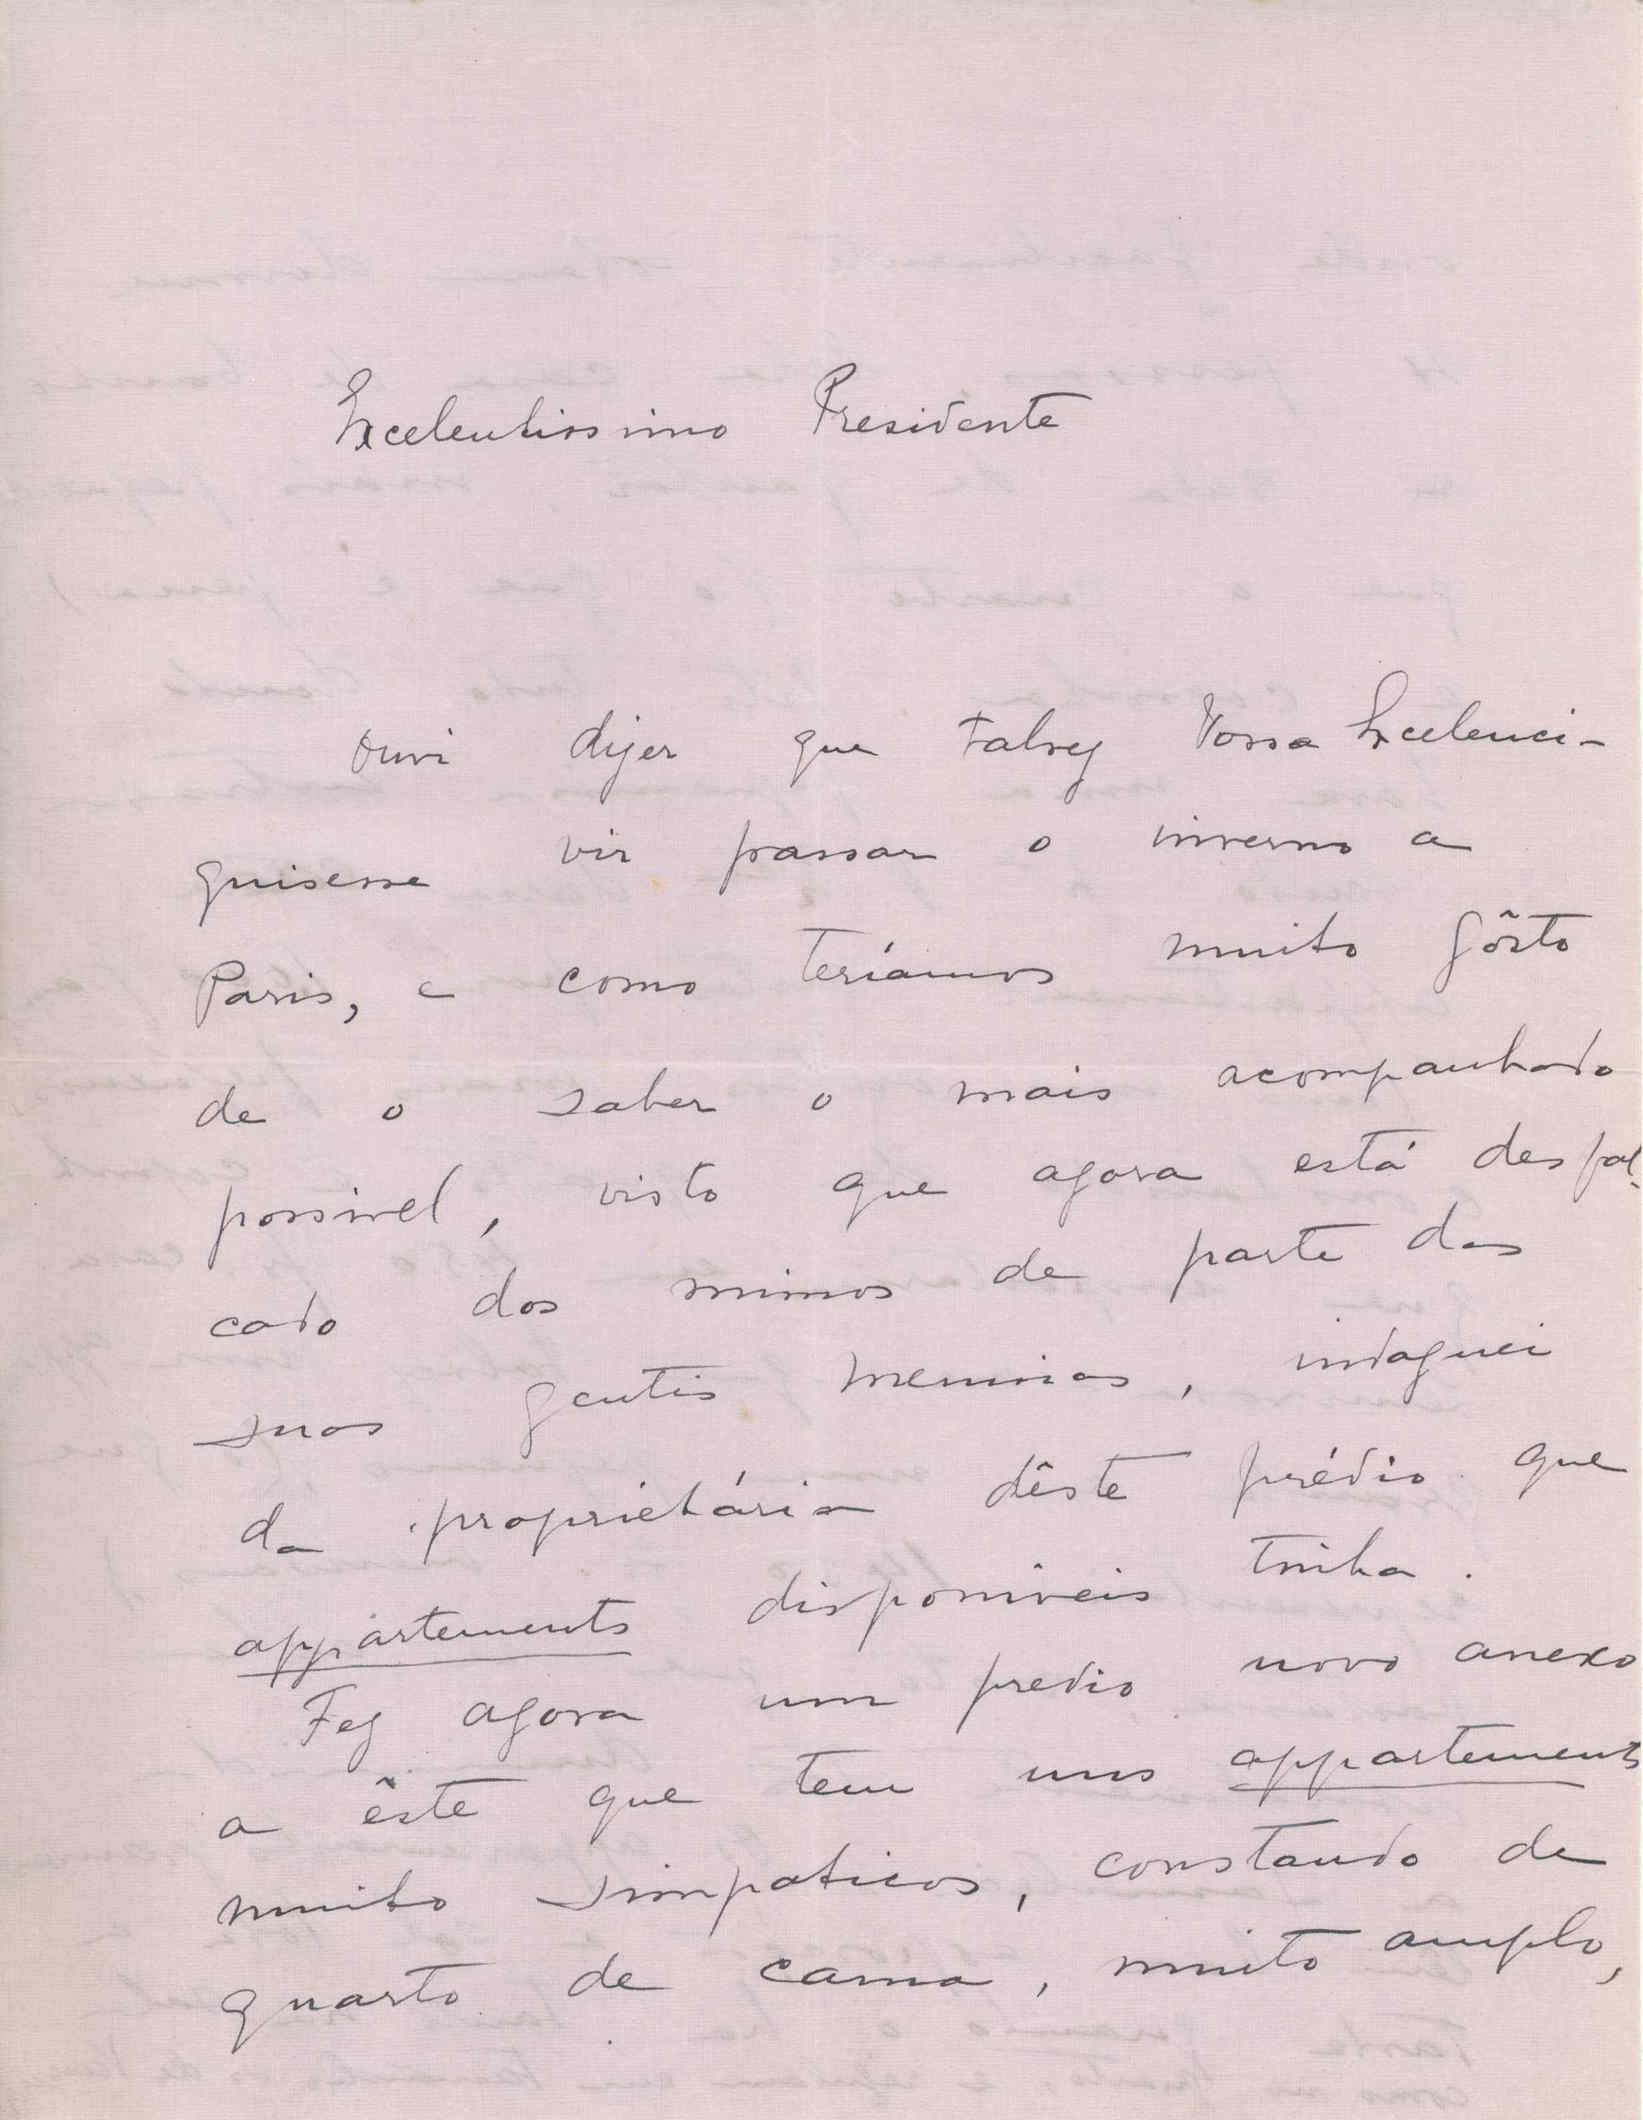 Excelentissimo Presidente
Ouvi dizer que talvez Vossa Excelenci-
quisesse vir passar o inverno a
Paris, e como teríamos muito gôsto
de o saber o mais acompanhado
possivel, visto que agora está desfal-
cado dos mimos de parte das
suas gentis meninas, indaguei
da proprietária dêste prédio que
appartements disponiveis tinha.
Fez agora um predio novo anexo
a êste que tem uns appartements
muito simpaticos, constando de
quarto de cama, muito amplo,